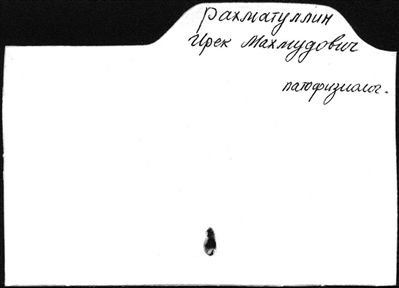 Рахматуллин
Ирек Махмудович
патофизиолог.